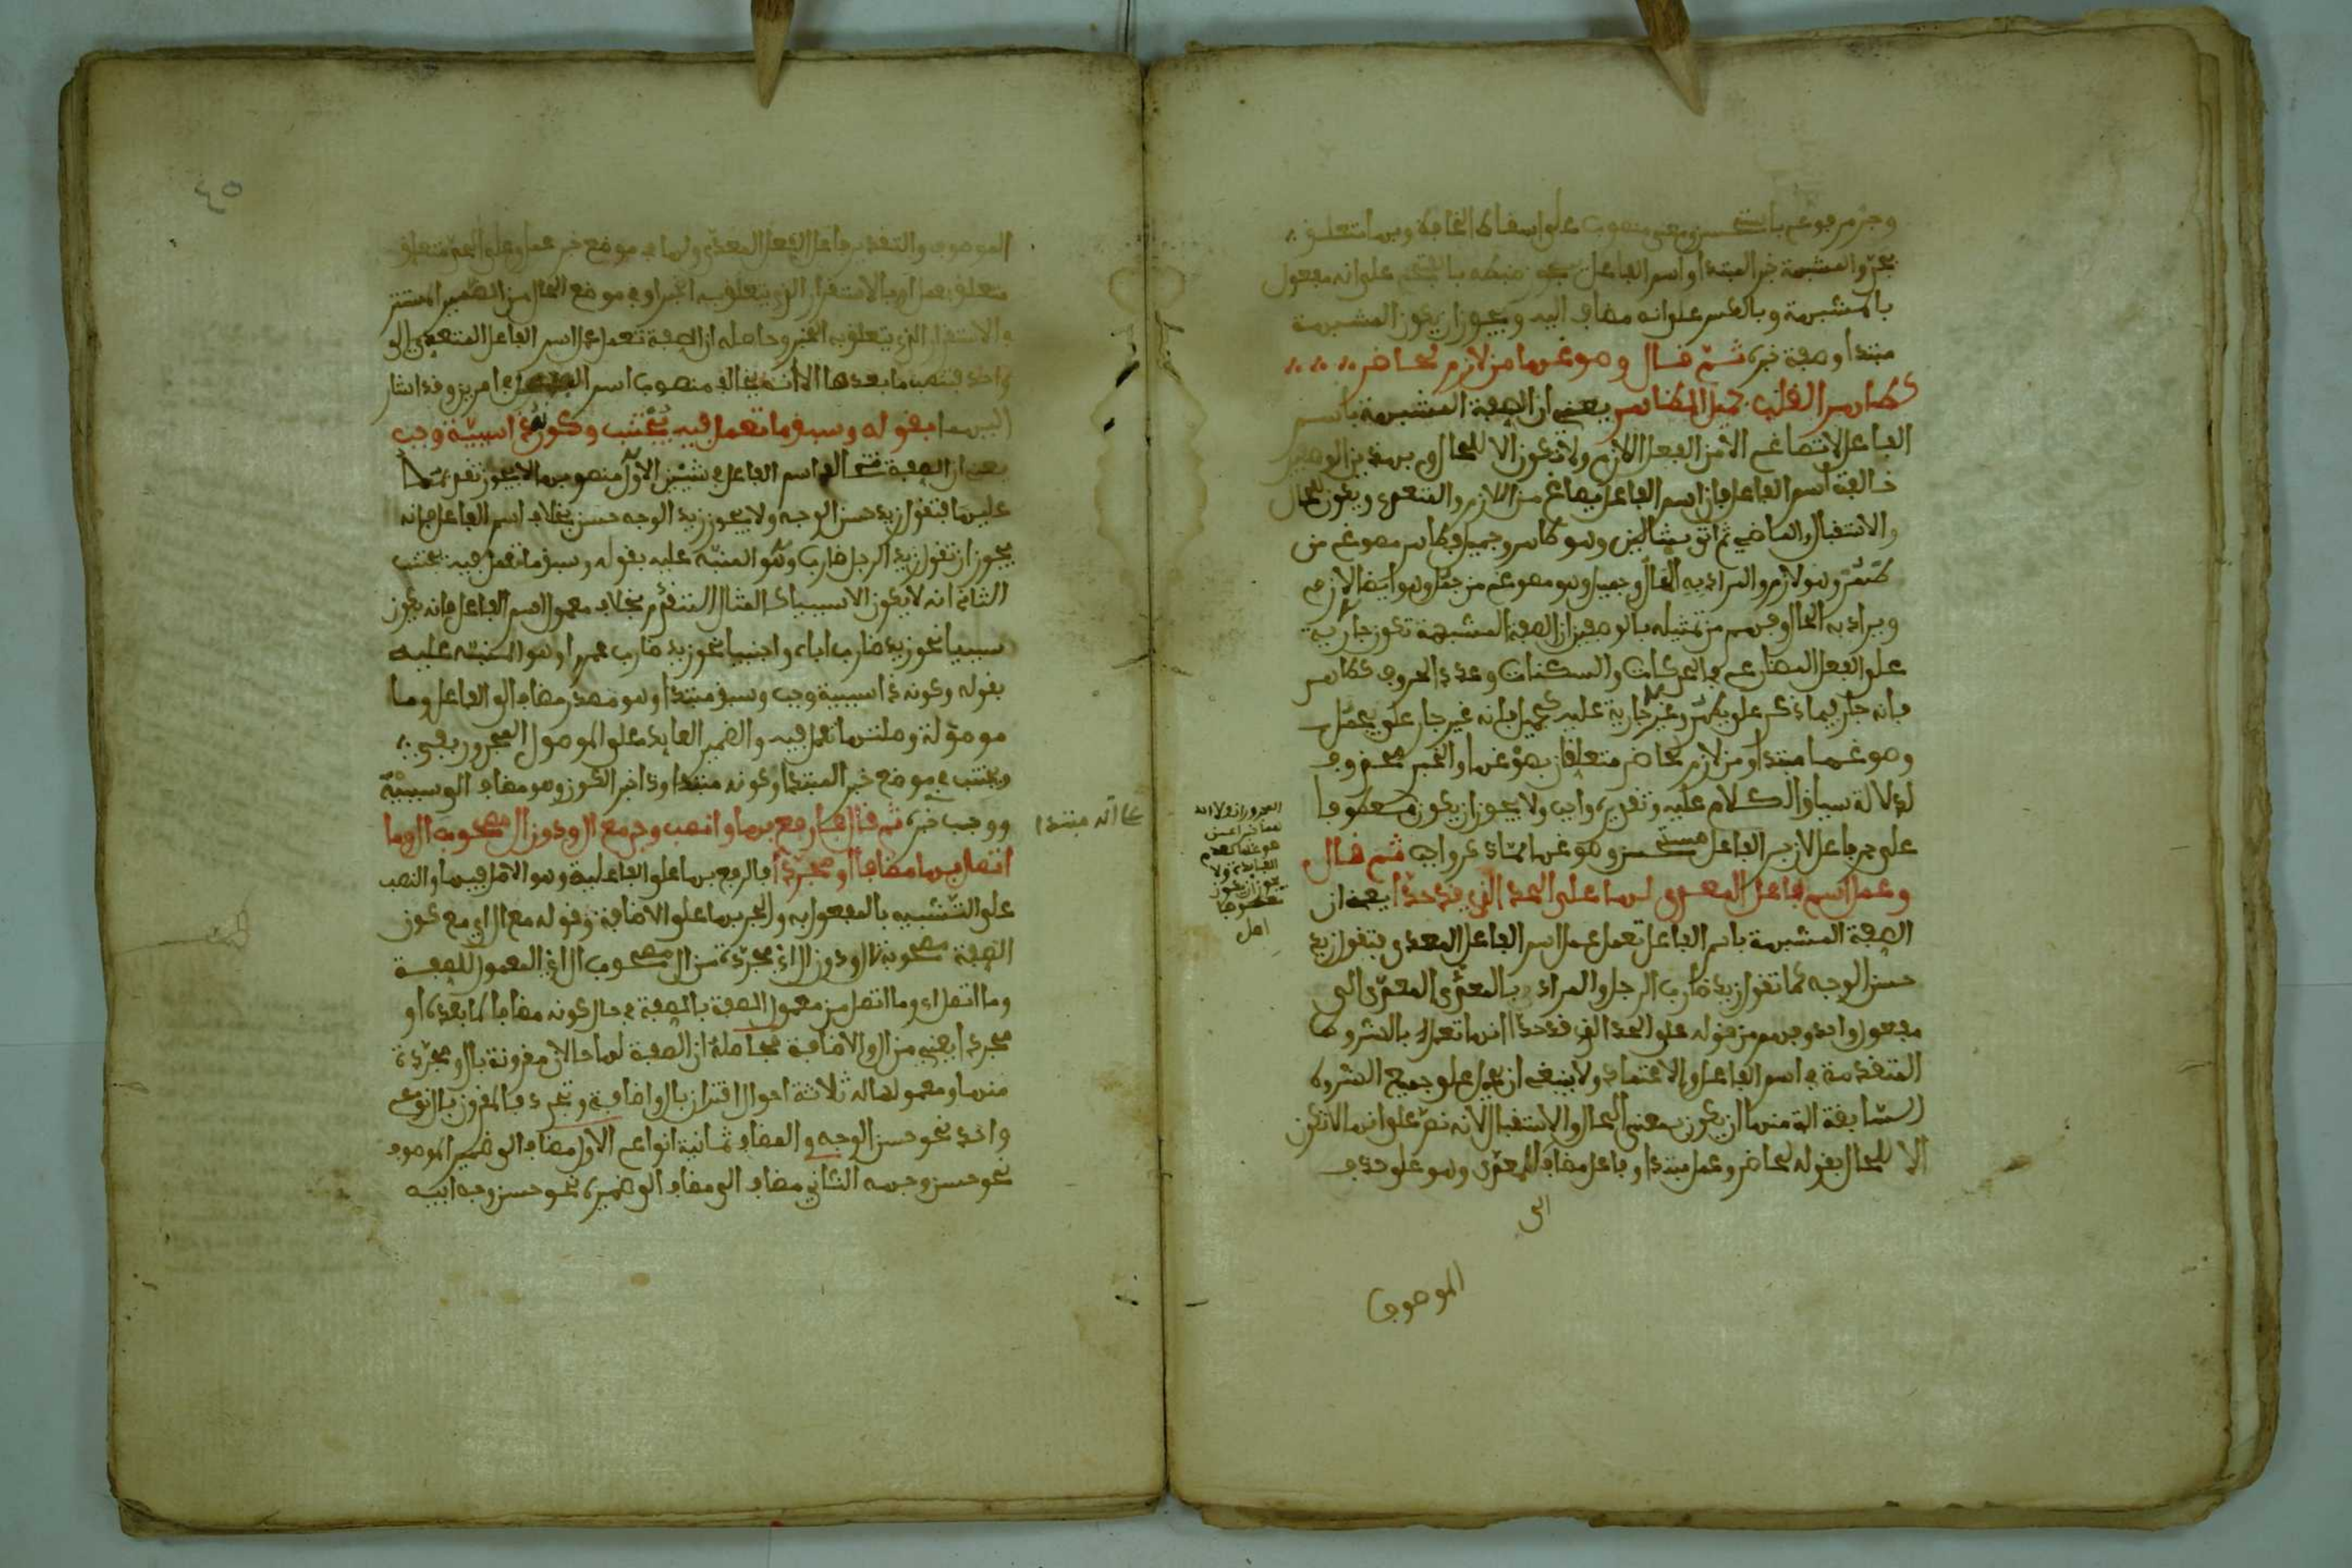 وجر مرفوع باستحسن ومعنى منصوب على اسقاط الخافض وبها متعلق
بجر والمشبهة خبر المبتدا واسم الفاعل يجوز ضبطه بالفتح على انه مفعول
بالمشبهة وبالكسر على انه مضاف اليه ويجوز ان يكون المشبهة
مبتدا وصفة خبره ثم قال وصوغها من لازم لحاضر
كطاهر القلب جميل الظاهر يعني ان الصفة المشبهة باسم
الفاعل لا تصاغ الا من الفعل اللازم ولا تكون الا للحال وبهذين الوصفين
خالفت اسم الفاعل فان اسم الفاعل يصاغ من اللازم والمتعدي ويكون للحال
والاستقبال والماضي ثم اتى بمثالين وهو طاهر وجميل فطاهر مصوغ من
طهر وهو لازم والمراد به الحال وجميل وهو مصوغ من جمل وهو ايضا لازم
ويراد به الحال وفهم من تمثيله بالوصفين ان الصفة المشبهة تكون جارية
على الفعل المضارع في الحركات والسكنات وعدد الحروف كطاهر
فانه جار فيما ذكر على يطهر وغير جارية عليه كجميل فانه غير جار على يجمل
وصوغها مبتدا ومن لازم لحاضر متعلقان بصوغها والخبر محذوف
لدلالة سياق الكلام عليه وتقديره واجب ولا يجوز ان يكون معطوفا
على جر فاعل لان جر الفاعل مستحسن وصوغها مما ذكر واجب ثم قال
وعمل اسم فاعل المعدى لها على الحد الذي قد حدا يعني ان
الصفة المشبهة باسم الفاعل تعمل عمل اسم الفاعل المعدى فتقول زيد
حسن الوجه كما تقول زيد ضارب الرجل والمراد بالمعدى المعدى الى
مفعول واحد وفهم من قوله على الحد الذي قد حدا انها تعمل بالشروط
المتقدمة في اسم الفاعل والاعتماد ولا ينبغي ان يحمل على جميع الشروط
السابقة التي منها ان يكون بمعنى الحال والاستقبال لانه نص على انها لا تكون
الا للحال بقوله لحاضر وعمل مبتدا وفاعل مضاف للمعدى وهو على حذف
الموصوف
الموصوف والتقدير فاعل الفعل المعدى ولها في موضع خبر عمل وعلى الحد متعلق
متعلق بعمل او بالاستقرار الذي يتعلق به الخبر او في موضع الحال من الضمير المستتر
والاستقرار الذي يتعلق به الخبر وحاصله ان الصفة تعمل عمل اسم الفاعل المتعدي الى
واحد فتنصب ما بعدها الا انه يخالف منصوب اسم الفاعل في امرين وقد اشار
اليهما بقوله وسبق ما تعمل فيه يجتنب وكونه ذا سببية وجب
يعني ان الصفة تخالف اسم الفاعل في شيئين الاول منصوبها لا يجوز تقديمه
عليها فتقول زيد حسن الوجه ولا يجوز زيد الوجه حسن بخلاف اسم الفاعل فانه
يجوز ان تقول زيد الرجل ضارب وهو المنبه عليه بقوله وسبق ما تعمل فيه يجتنب
الثاني انه لا يكون الا سببيا كالمثال المتقدم بخلاف معمول اسم الفاعل فانه يكون
سببيا نحو زيد ضارب اباه واجنبيا نحو زيد ضارب عمرا وهو المنبه عليه
بقوله وكونه ذا سببية وجب وسبق مبتدا وهو مصدر مضاف الى الفاعل وما
موصولة وصلتها تعمل فيه والضمير العايد على الموصول المجرور بفي
ويجتنب في موضع خبر المبتدا وكونه مبتدا وذا خبر الكون وهو مضاف الى سببية
ووجب خبره ثم قال فارفع بها وانصب وجر مع ال ودون ال مصحوب ال وما
اتصل بها مضافا او مجردا فالرفع بها على الفاعلية وهو الاصل فيها والنصب
على التشبيه بالمفعول به والجر بها على الاضافة وقوله مع ال اي مع كون
الصفة مصحوبة بال ودون ال اي مجردة من ال مصحوب ال اي المعمول للصفة
وما اتصل اي وما اتصل من معمول الصفة بالصفة في حال كونه مضافا لما بعده او
مجردا يعني من ال والاضافة فحاصله ان الصفة لها حالان مقرونة بال ومجردة
منها ومعمولها له ثلاثة احوال اقتران بال واضافة وتجرد فالمقرون بال نوع
واحد نحو حسن الوجه والمضاف ثمانية انواع الاول مضاف الى ضمير الموصوف
نحو حسن وجهه الثاني مضاف الى مضاف الى ضميره نحو حسن وجه ابيه
على انه مبتدا
٤٥